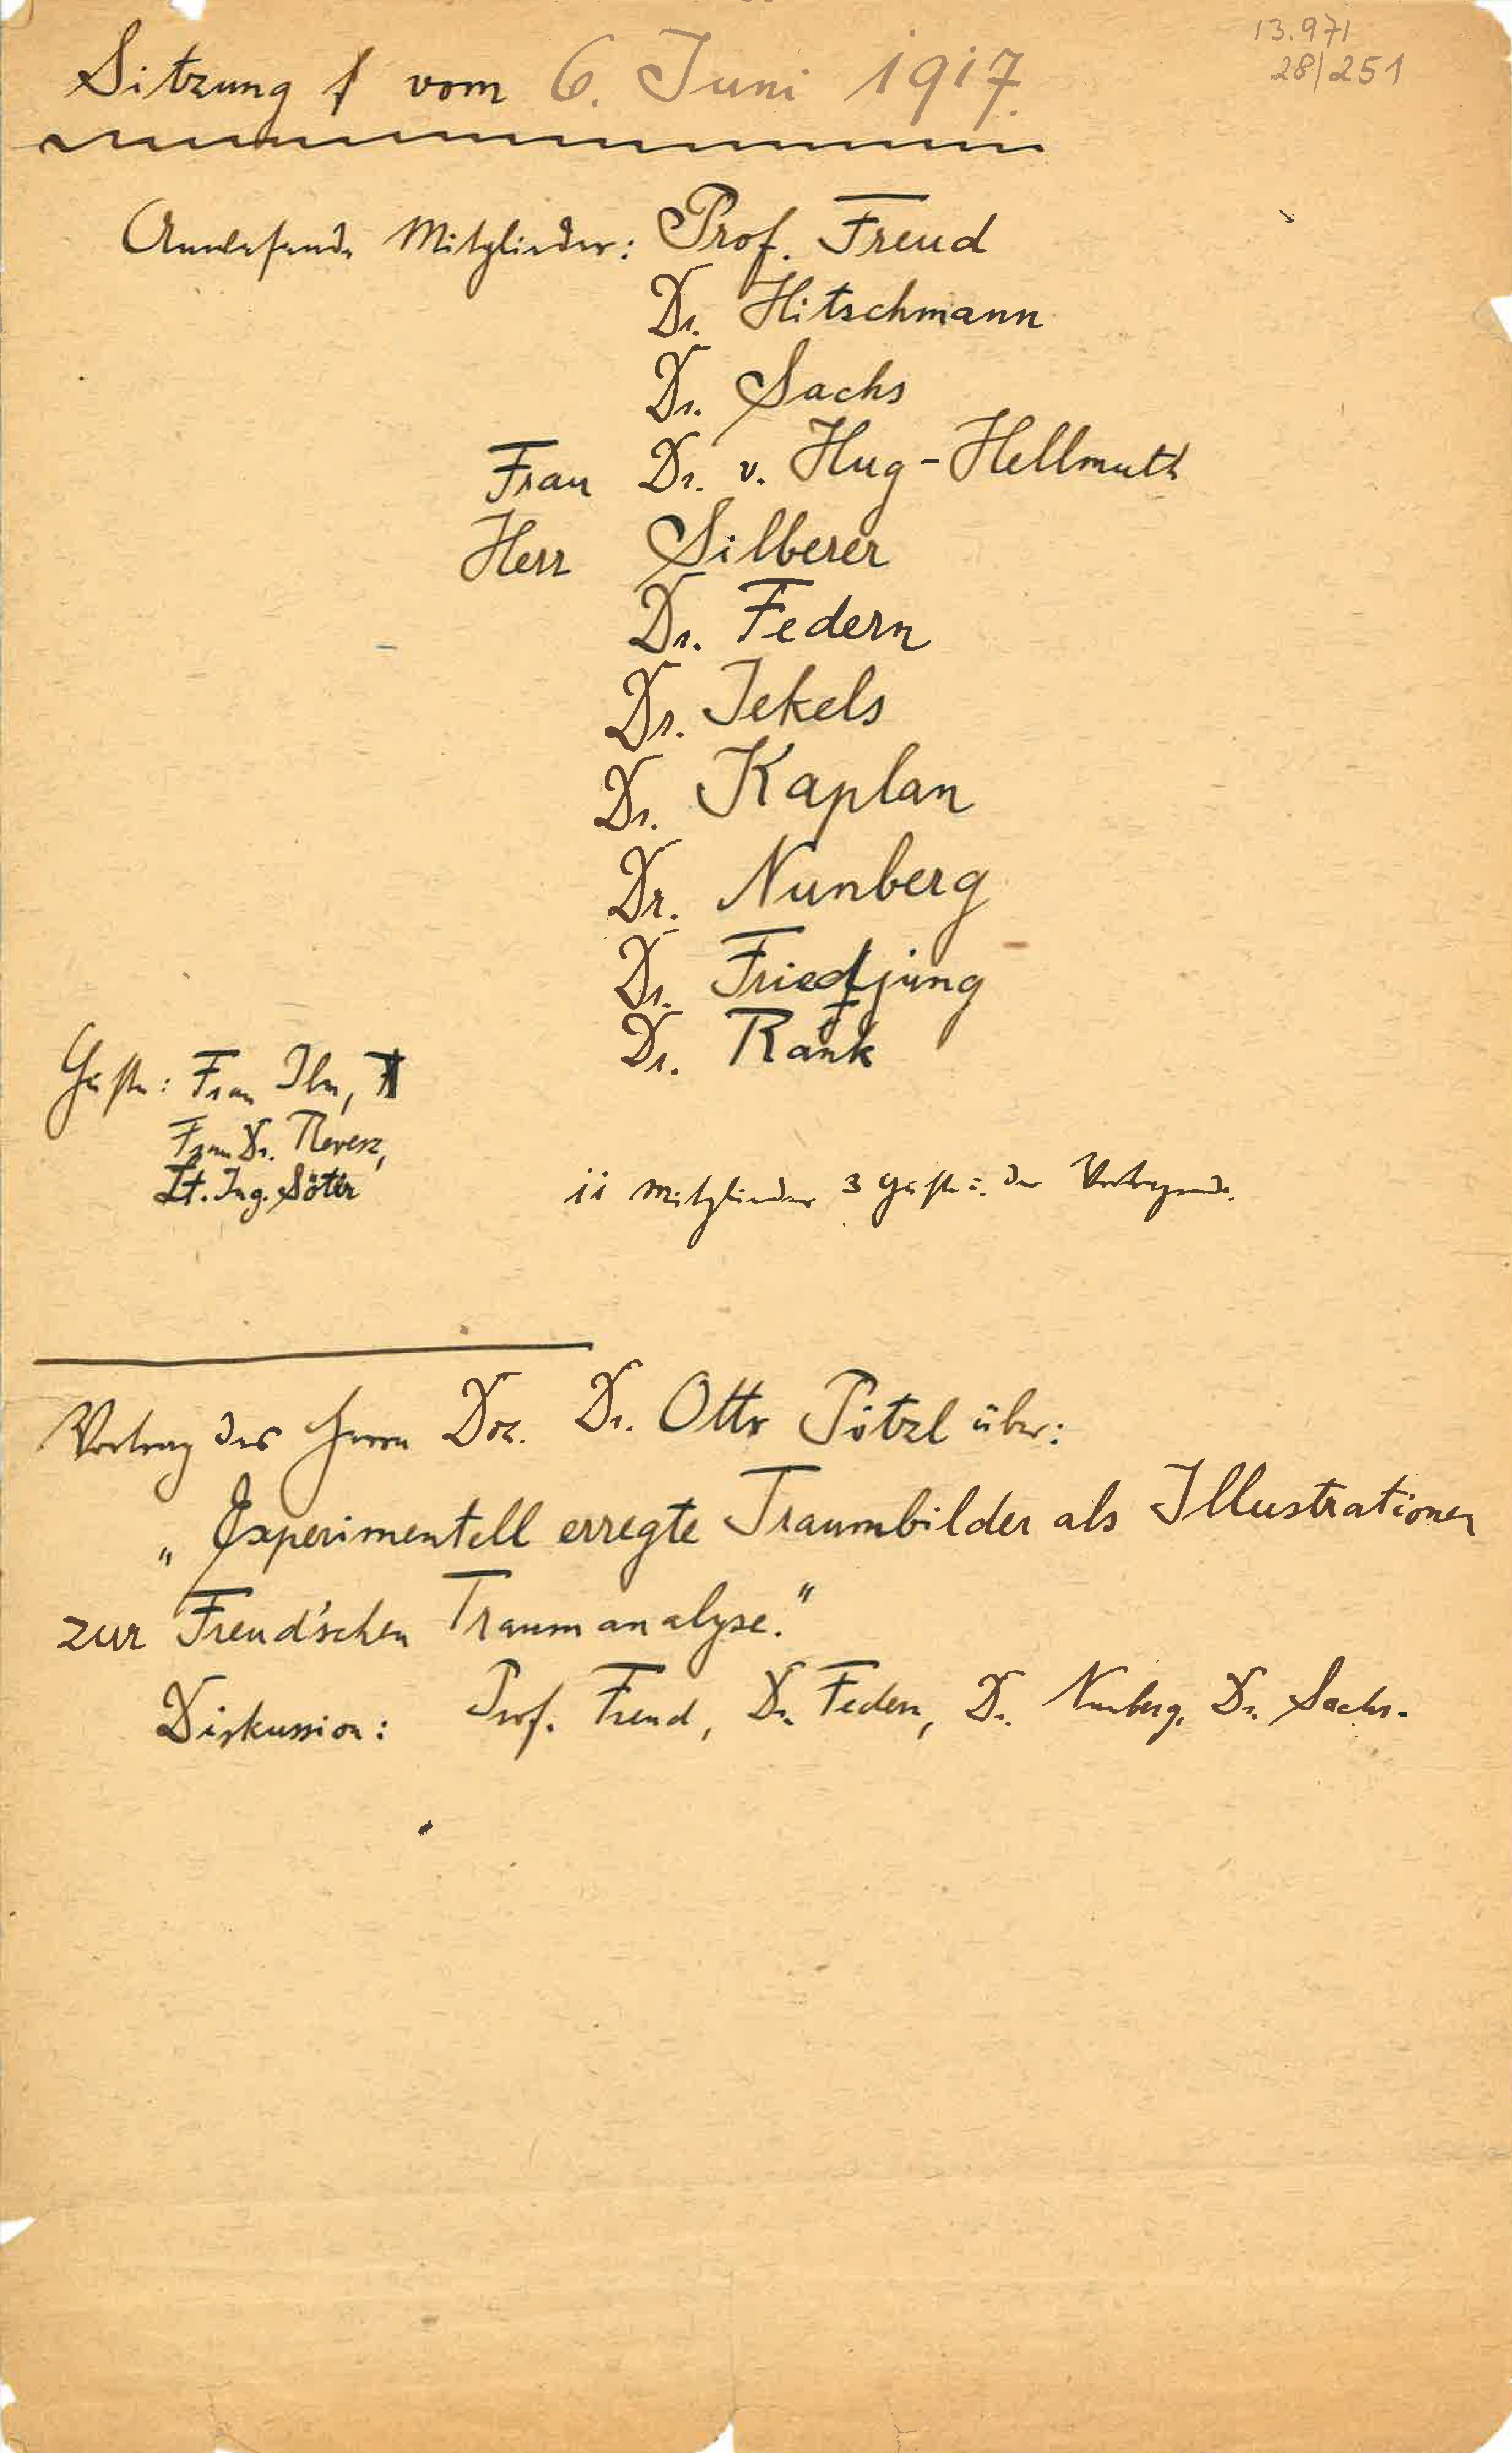 13.971
28/251
Sitzung vom 6. Juni 1917.
Anwesende Mitglieder: Prof. Freud
Dr. Hitschmann
Dr. Sachs
Frau Dr. v. Hug-Hellmuth
Herr Silberer
Dr. Federn
Dr. Jekels
Dr. Kaplan
Dr. Nunberg
Dr. Friedjung
Dr. Rank
Gäste: Frau Ilm,
Frau Dr. Revesz,
Lt. Ing. Söter
11 Mitglieder 3 Gäste der Vortragende.
Vortrag des Herrn Doz. Dr. Otto Pötzl über:
„Experimentell erregte Traumbilder als Illustrationen
zur Freud'schen Traumanalyse."
Diskussion: Prof. Freud, Dr. Federn, Dr. Nunberg, Dr. Sachs.